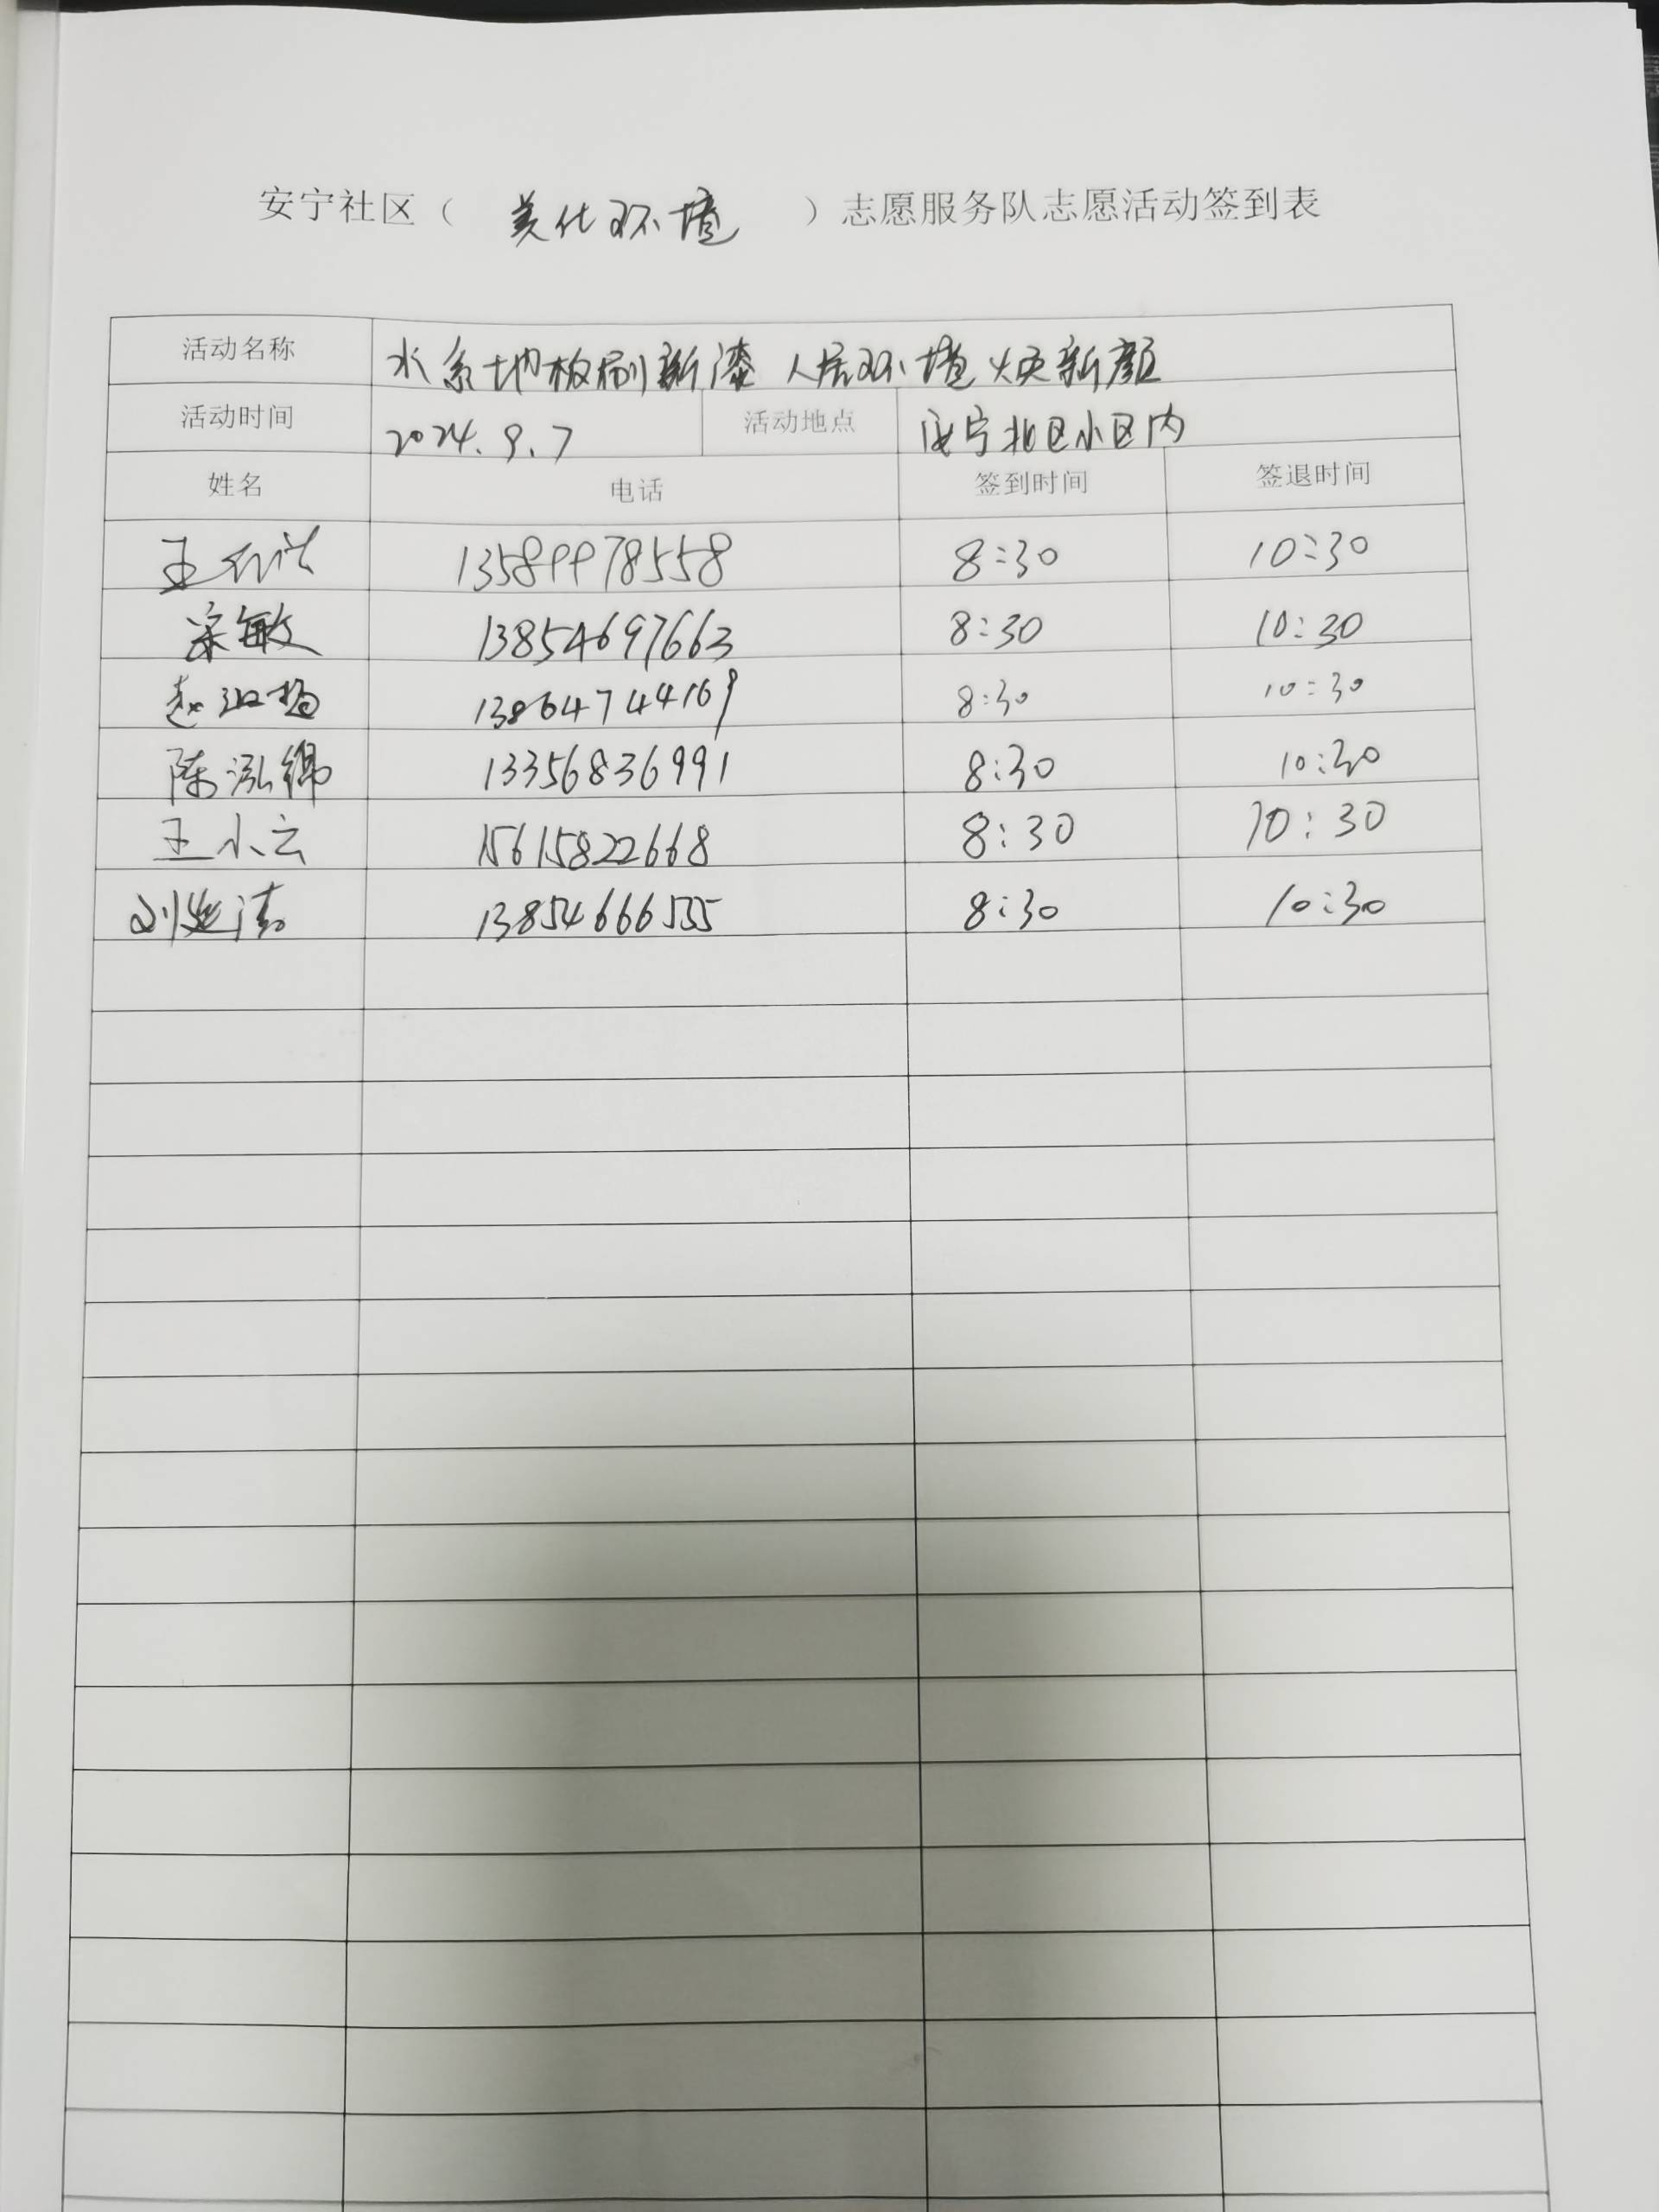 安宁社区（ 美化环境 ）志愿服务队志愿活动签到表
活动名称 水系地板刷新漆 人居环境焕新颜
活动时间 2024.9.7 活动地点 安宁北区小区内
姓名 电话 签到时间 签退时间
王 13589978558 8:30 10:30
宋敏 13854697663 8:30 10:30
赵 13864744169 8:30 10:30
陈泓锦 13356836991 8:30 10:30
王小云 15615822668 8:30 10:30
刘 13854666555 8:30 10:30